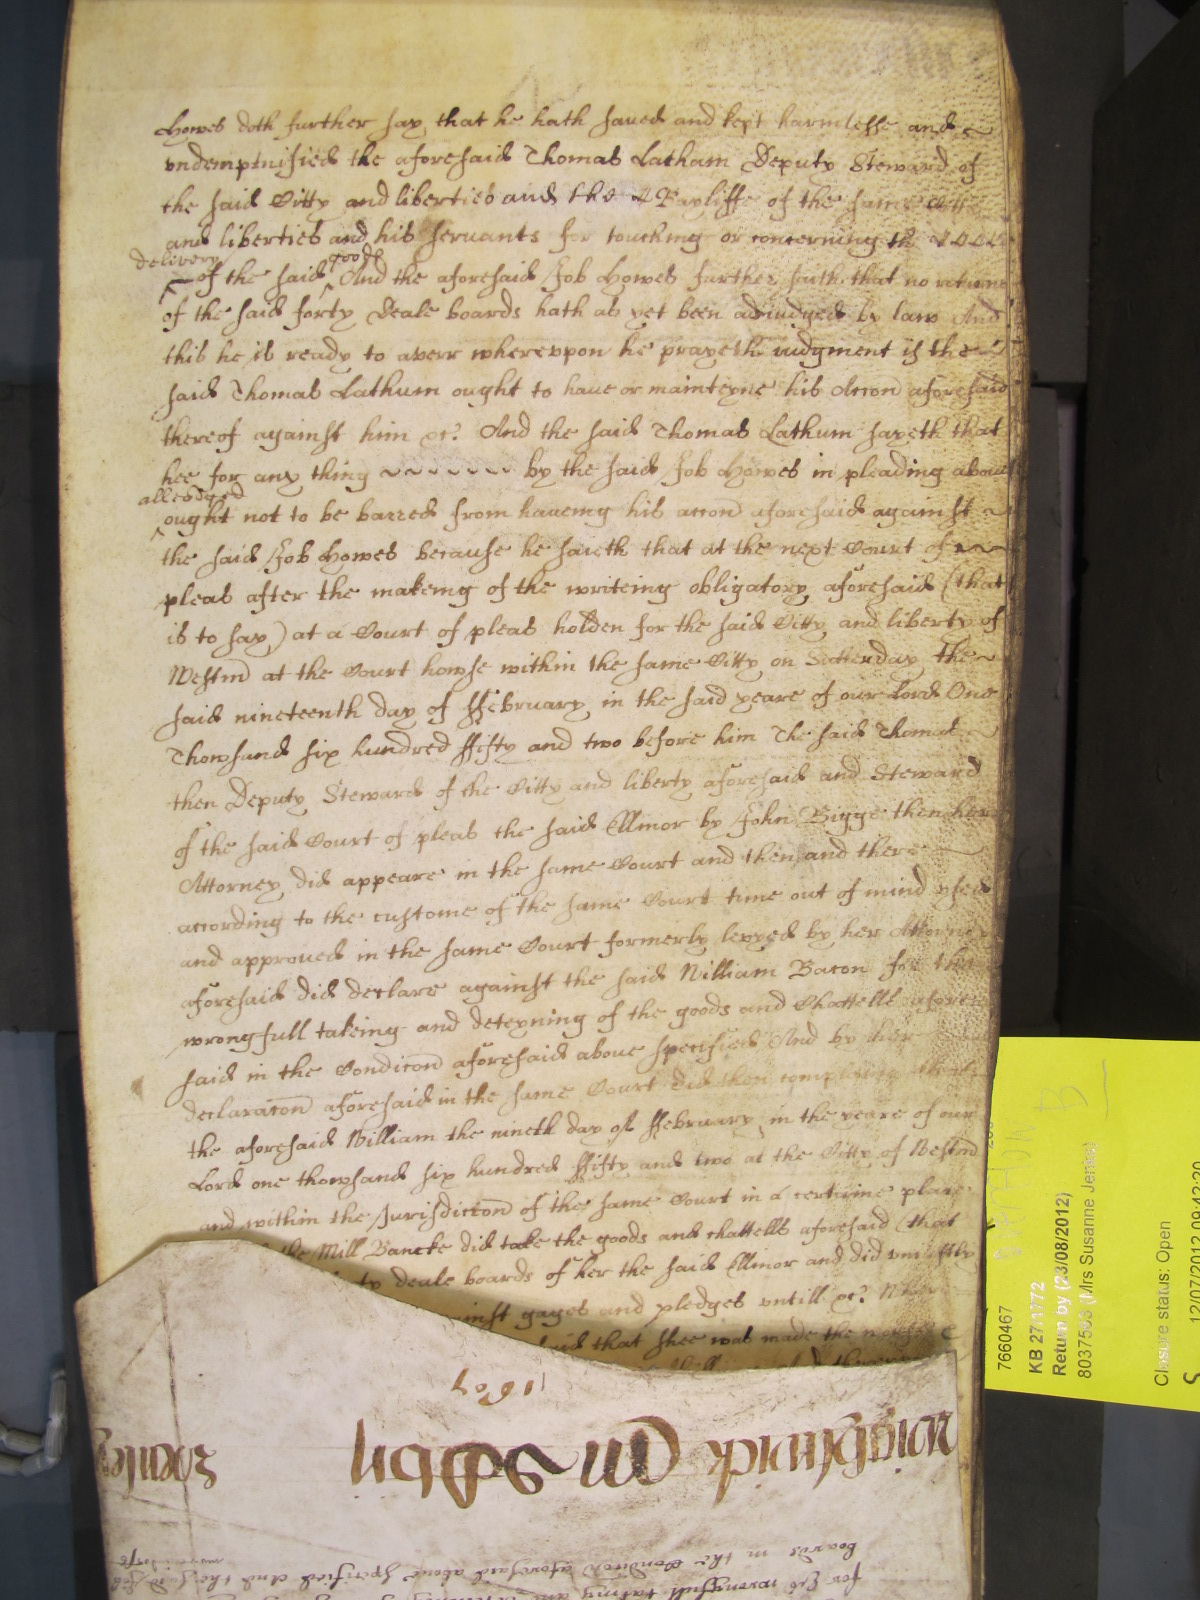 Howes doth further say that he hath saved and kept harmlesse and
undempnified the aforesaid Thomas Latham Deputy Steward of
the said Citty and liberties and the Bayliffe of the same Citty
and liberties and his servants for touching or concerning the
delivery of the said goods And the aforesaid Job Howes further saith that no returne
of the said forty Deale boards hath as yet been adiudged by law And
this he is ready to averr wherevpon he prayeth iudgment if the
said Thomas Lathum ought to haue or mainteyne his Accon aforesaid
thereof against him &c? And the said Thomas Lathum sayeth that
hee for any thing by the said Job Howes in pleading aboue
alledged ought not to be barred from haueing his accon aforesaid against
the said Job Howes because he saieth that at the next Court of
pleas after the makeing of the writeing obligatory aforesaid (that
is to say) at a Court of pleas holden for the said Citty and liberty of
Westm at the Court howse within the same Citty on Satterday the
said nineteenth day of ffebruary in the said yeare of our Lord One
Thowsand six hundred ffifty and two before him The said Thomas
then Deputy Steward of the Citty and liberty aforesaid and Steward
of the said Court of pleas the said Ellinor by John Bigge then her
Attorney did appeare in the same Court and then and there
according to the custome of the same Court time out of mind vsed
and approued in the same Court formerly levyed by her Attorney
aforesaid did declare against the said William Bacon for the
wrongfull takeing and deteyning of the goods and Chattells afore
said in the Condicon aforesaid above specified And by her
declaracon aforesaid in the same Court did then complaine that
the aforesaid William the nineth day of ffebruary in the yeare of our
Lord one thowsand six hundred ffifty and two at the Citty of Westm
and within the Jurisdiccon of the same Court in a certaine place
the Mill Bancke did take the goods and chattells aforesaid (that
deale boards of her the said Ellinor and did vniustly
gages and pledges vntill &c?
said that shee was made the
1607
Wrightwick
7660467
KB 27/1772
Return by (23/08/2012)
8037593 (Mrs Susanne Jenks)
Closure status: Open
12/07/2012 09:43:20
for his wrongfull takeing
boards in the Condicon aforesaid above specified And the said Job